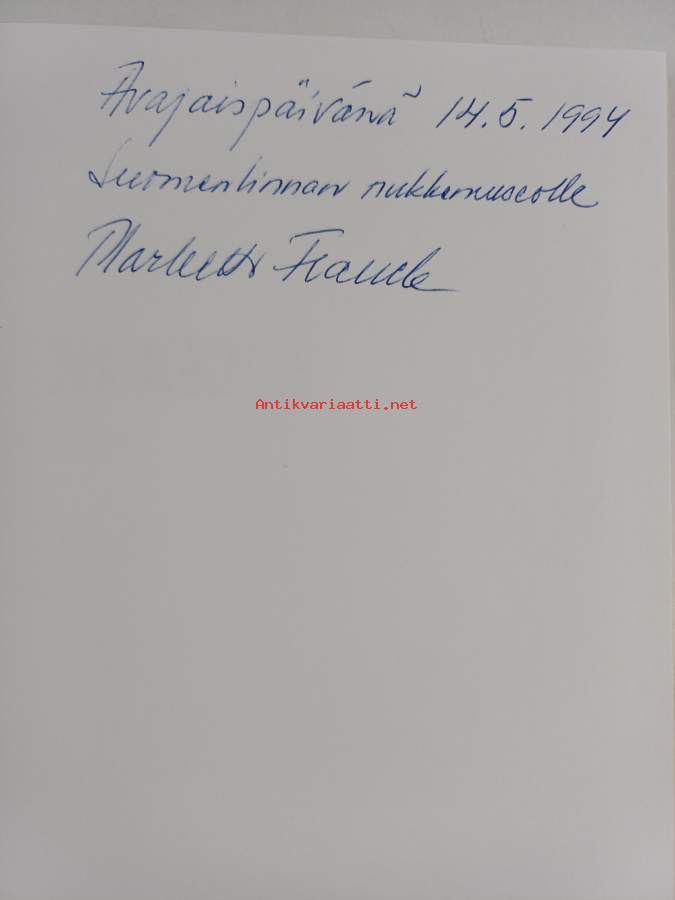 Avajaispäivänä 14.5.1994
Suomenlinnan nukkemuseolle
Marketta Franck
Antikvariaatti.net